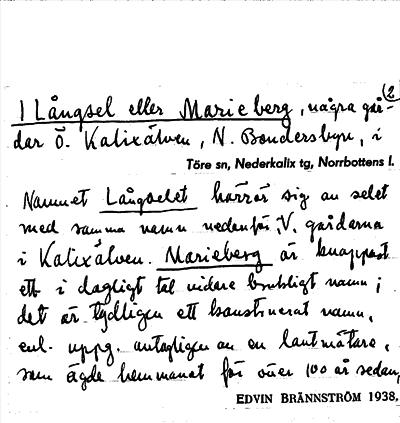 (2
1 Långsel eller Marieberg, några går-
dar Ö. Kalixälven, N. Bondersbyn, i
Töre sn, Nederkalix tg, Norrbottens l.
Namnet Långselet härrör sig av selet
med samma namn nedanför, V. gårdarna
i Kalixälven. Marieberg är knappast
ett i dagligt tal vidare brukligt namn;
det är tydligen ett konstruerat namn,
enl. uppg. antagligen av en lantmätare,
som ägde hemmanet för över 100 år sedan,
EDVIN BRÄNNSTRÖM 1938,